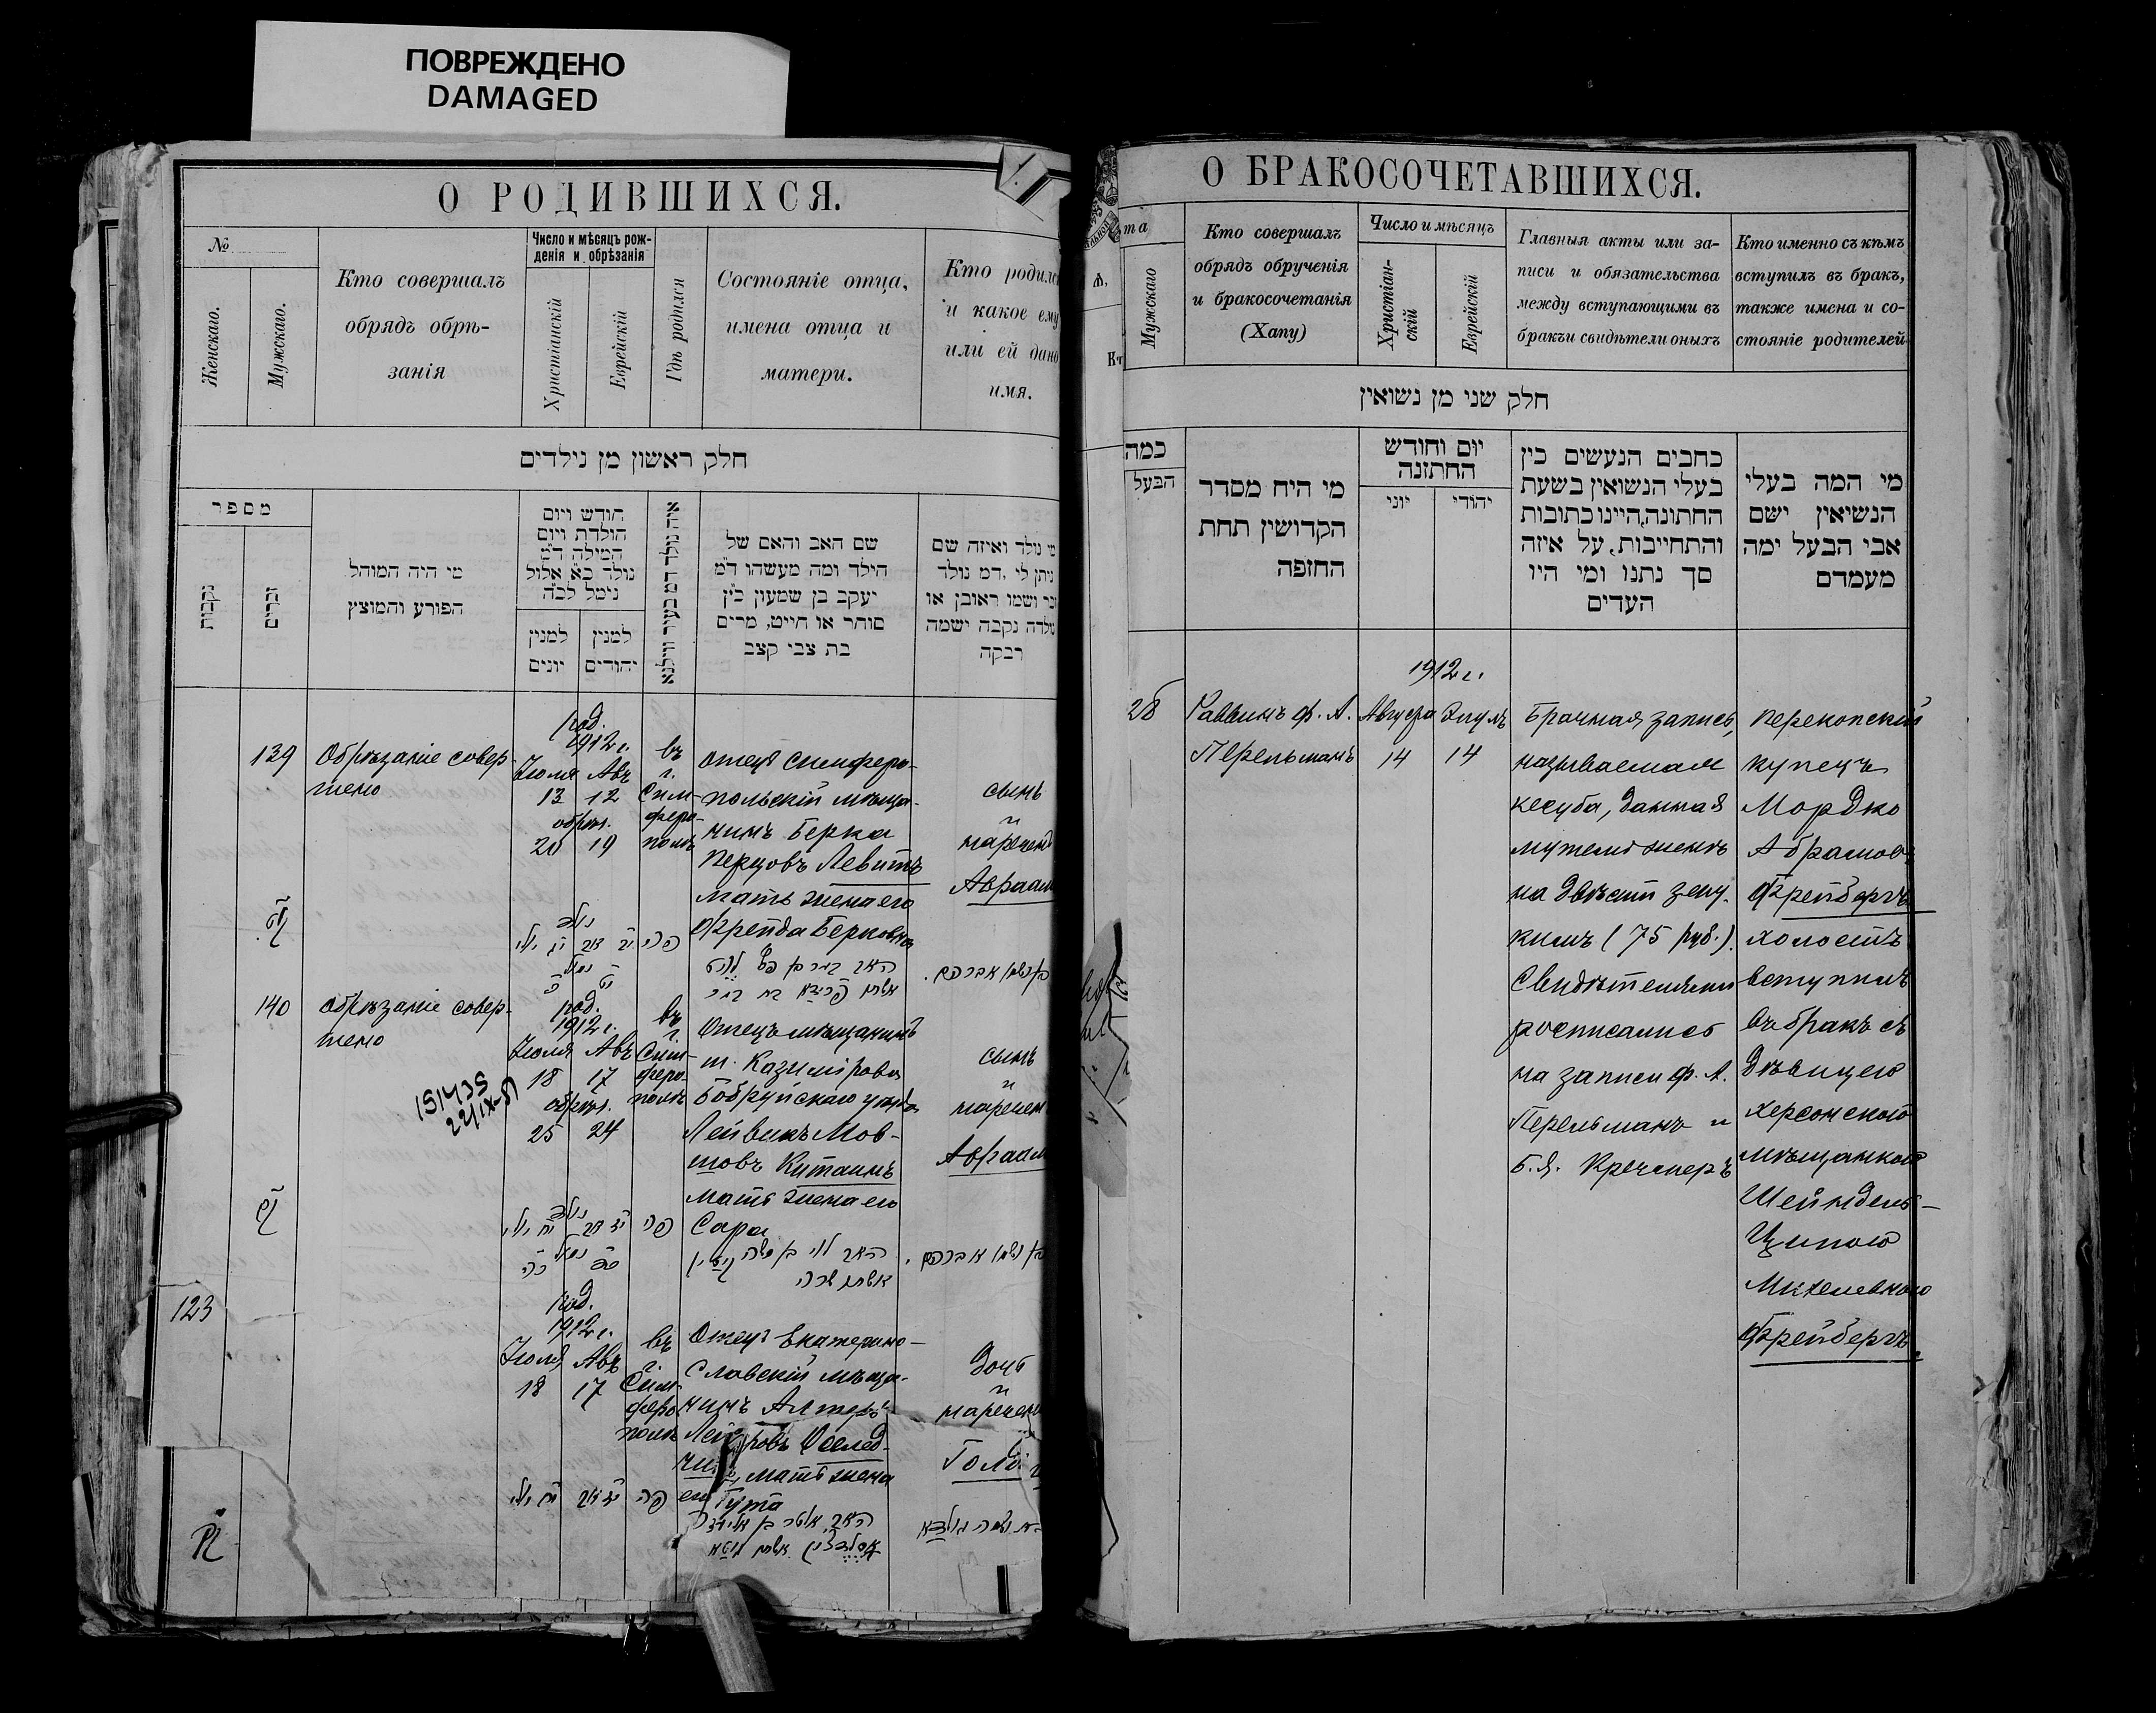 ПОВРЕЖДЕНО
DAMAGED
О РОДИВШИХСЯ.
№
Женскаго.
Мужскаго.
Кто совершалъ
обрядъ обрѣ-
занія
Число и мѣсяцъ рож-
денія и обрѣзанія
Христіанскій
Еврейскій
Гдѣ родился
Состояніе отца,
имена отца и
матери.
Кто родился
и какое ему
или ей дано
имя.
חלק ראשון מן נילדים
מספר
נקבות
זכרים
מי היה המוהל
הפורע והמוצץ
חודש ויום
הולדת ויום
המילה ד״מ
נולד כ״א אלול
נימל לכ״ה
למנין
יונים
למנין
יהודים
שם האב והאם של
הילד ומה מעשהו ד״מ
יעקב בן שמעון כ״ין
סוחר או חייט, מרים
בת צבי קצב
מי נולד ואיזה שם
ניתן לו, דמ נולד
זכר ושמו ראובן או
נולדה נקבה ישמה
רבקה
139
Обрѣзаніе совер-
шено
род.
1912 г.
Іюля Авъ
13 12
обрѣз.
20 19
въ
г.
Сим-
феро-
полѣ
отецъ симферо-
польскій мѣща-
нинъ Берка
Перцовъ Левитъ
мать жена его
Фрейда Берковна
сынъ
и
нареченъ
Авраам
140
обрѣзаніе совер-
шено
род.
1912 г.
Іюля Авъ
18 17
обрѣз.
25 24
въ
г.
Сим-
феро-
полѣ
Отецъ мѣщанинъ
м. Казимірова
Бобруйскаго уѣзда
Лейвикъ Мов-
шовъ Китаинъ
мать жена его
Сара
сынъ
и
наречен
Авраам
151435
22/IX-81
123
род.
1912 г.
Іюля Авъ
18 17
въ
г.
Сим-
феро-
полѣ
Отецъ Екатерино-
славскій мѣща-
нинъ Алтеръ
мать жена
его Гута
дочь
и
наречена
О БРАКОСОЧЕТАВШИХСЯ.
Мужскаго
Кто совершалъ
обрядъ обрученія
и бракосочетанія
(Хапу)
Число и мѣсяцъ
Христіан-
скій
Еврейскій
Главныя акты или за-
писи и обязательства
между вступающими въ
бракъ и свидѣтели оныхъ
Кто именно съ кѣмъ
вступилъ въ бракъ,
также имена и со-
стояніе родителей
חלק שני מן נשואין
כמה
הבעל
מי היח מסדר
הקדושין תחת
החזפה
יום וחודש
החתונה
יוני
יהודי
כחבים הנעשים כין
בעלי הנשואין בשעת
החתונה,היינו כתובות
והתחייבות, על איזה
סך נתנו ומי היו
העדים
מי המה בעלי
הנשיאין ישם
אבי הבעל ימה
מעמדם
1912 г.
28
Раввинъ ф. А.
Перельманъ
Августа Элулъ
14 14
Брачная запись,
называемая
кесуба, данная
мужемъ женѣ
на двѣсти зеку-
кимъ (75 руб.).
Свидѣтелями
росписались
на записи ф. А.
Перельманъ и
Б. Я. Кречмеръ
Перекопскій
купецъ
Мордко
Абрамовъ
Фрейбергъ
холостъ
вступилъ
въ бракъ съ
дѣвицею
херсонскою
мѣщанкою
Шейндель-
Ципою
Михелевною
Фрейбергъ.